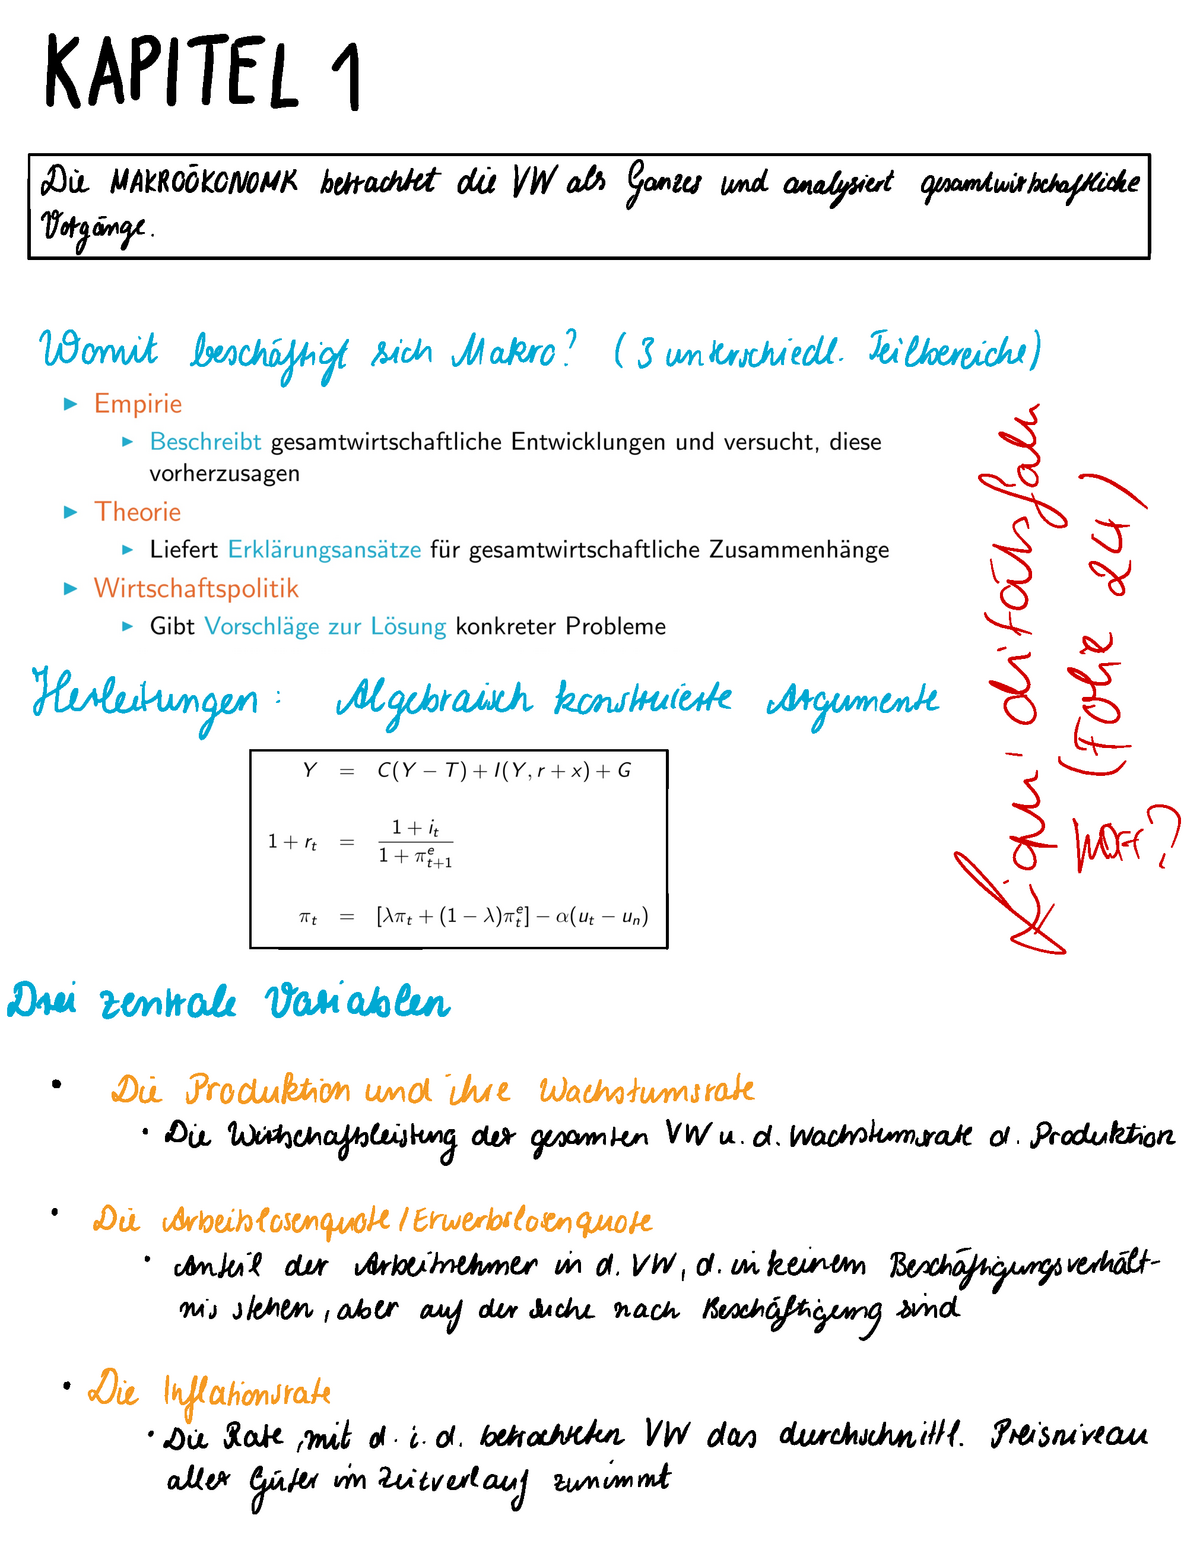 KAPITEL 1
Die MAKROÖKONOMK betrachtet die VW als Ganzes und analysiert gesamtwirtschaftliche
Vorgänge.
Womit beschäftigt sich Makro? (3 unterschiedl. Teilbereiche)
▶ Empirie
▶ Beschreibt gesamtwirtschaftliche Entwicklungen und versucht, diese
vorherzusagen
▶ Theorie
▶ Liefert Erklärungsansätze für gesamtwirtschaftliche Zusammenhänge
▶ Wirtschaftspolitik
▶ Gibt Vorschläge zur Lösung konkreter Probleme
Liquiditätsfalle
(Folie 24)
Herleitungen: Algebraisch konstruierte Argumente
Y = C(Y − T) + I(Y, r + x) + G
1 + r_t = (1 + i_t) / (1 + π^e_{t+1})
π_t = [λπ_t + (1 − λ)π^e_t] − α(u_t − u_n)
Drei zentrale Variablen
• Die Produktion und ihre Wachstumsrate
• Die Wirtschaftsleistung der gesamten VW u. d. Wachstumsrate d. Produktion
• Die Arbeitslosenquote/Erwerbslosenquote
• Anteil der Arbeitnehmer in d. VW, d. in keinem Beschäftigungsverhält-
nis stehen, aber auf der Suche nach Beschäftigung sind
• Die Inflationsrate
• Die Rate, mit d. i. d. betrachteten VW das durchschnittl. Preisniveau
aller Güter im Zeitverlauf zunimmt